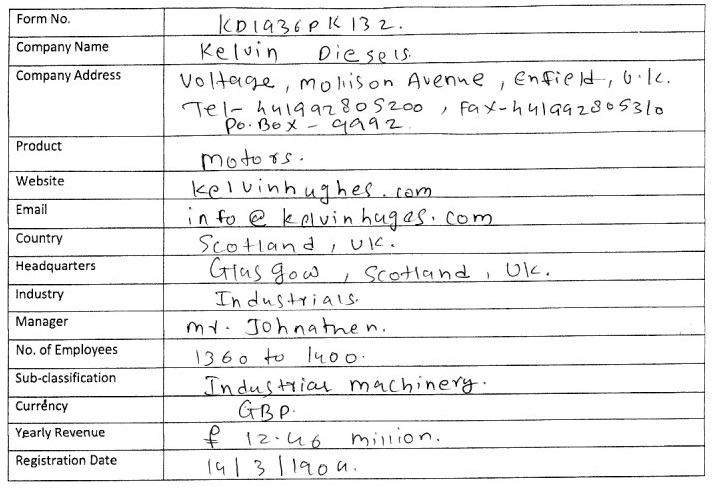 Form No. KD1936PK132.
Company Name Kelvin Diesels.
Company Address Voltage, mollison Avenue, Enfield, U.K.
Tel- 441992805200, Fax-441992805310
Po.Box - 9992.
Product motors.
Website kelvinhughes.com
Email info@kelvinhuges.com
Country Scotland, UK.
Headquarters Glasgow, Scotland, UK.
Industry Industrials.
Manager mr. Johnathen.
No. of Employees 1360 to 1400.
Sub-classification Industrial machinery.
Currency GBP.
Yearly Revenue £ 12.46 million.
Registration Date 14/3/1904.